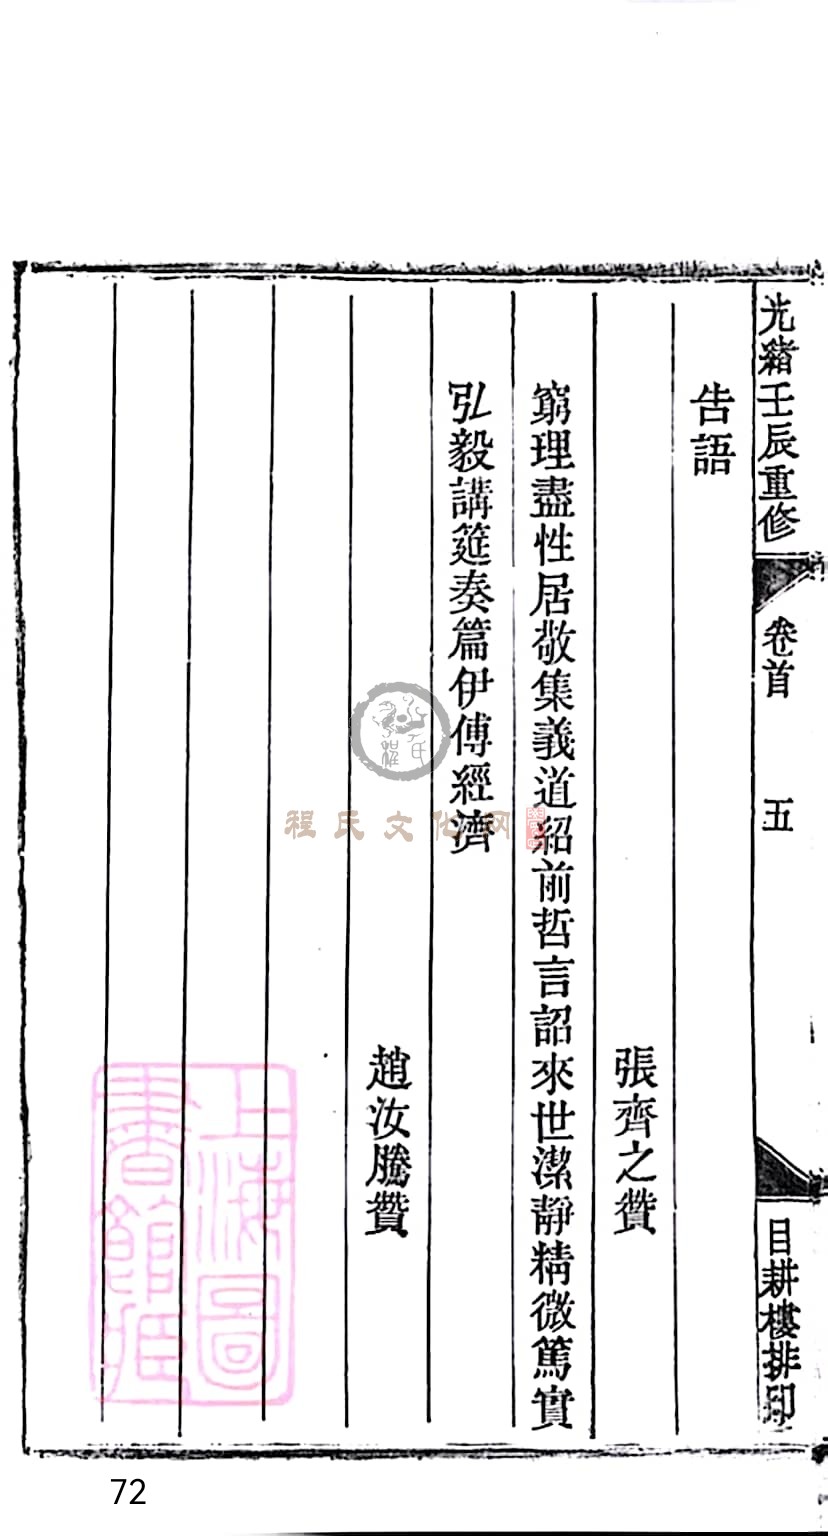 光緒壬辰重修
卷首
五
目耕樓排印
告語
張齊之贊
窮理盡性居敬集義道紹前哲言詔來世潔靜精微篤實
弘毅講筵奏篇伊傅經濟
趙汝騰贊
程氏文化网
上海圖書館藏
72